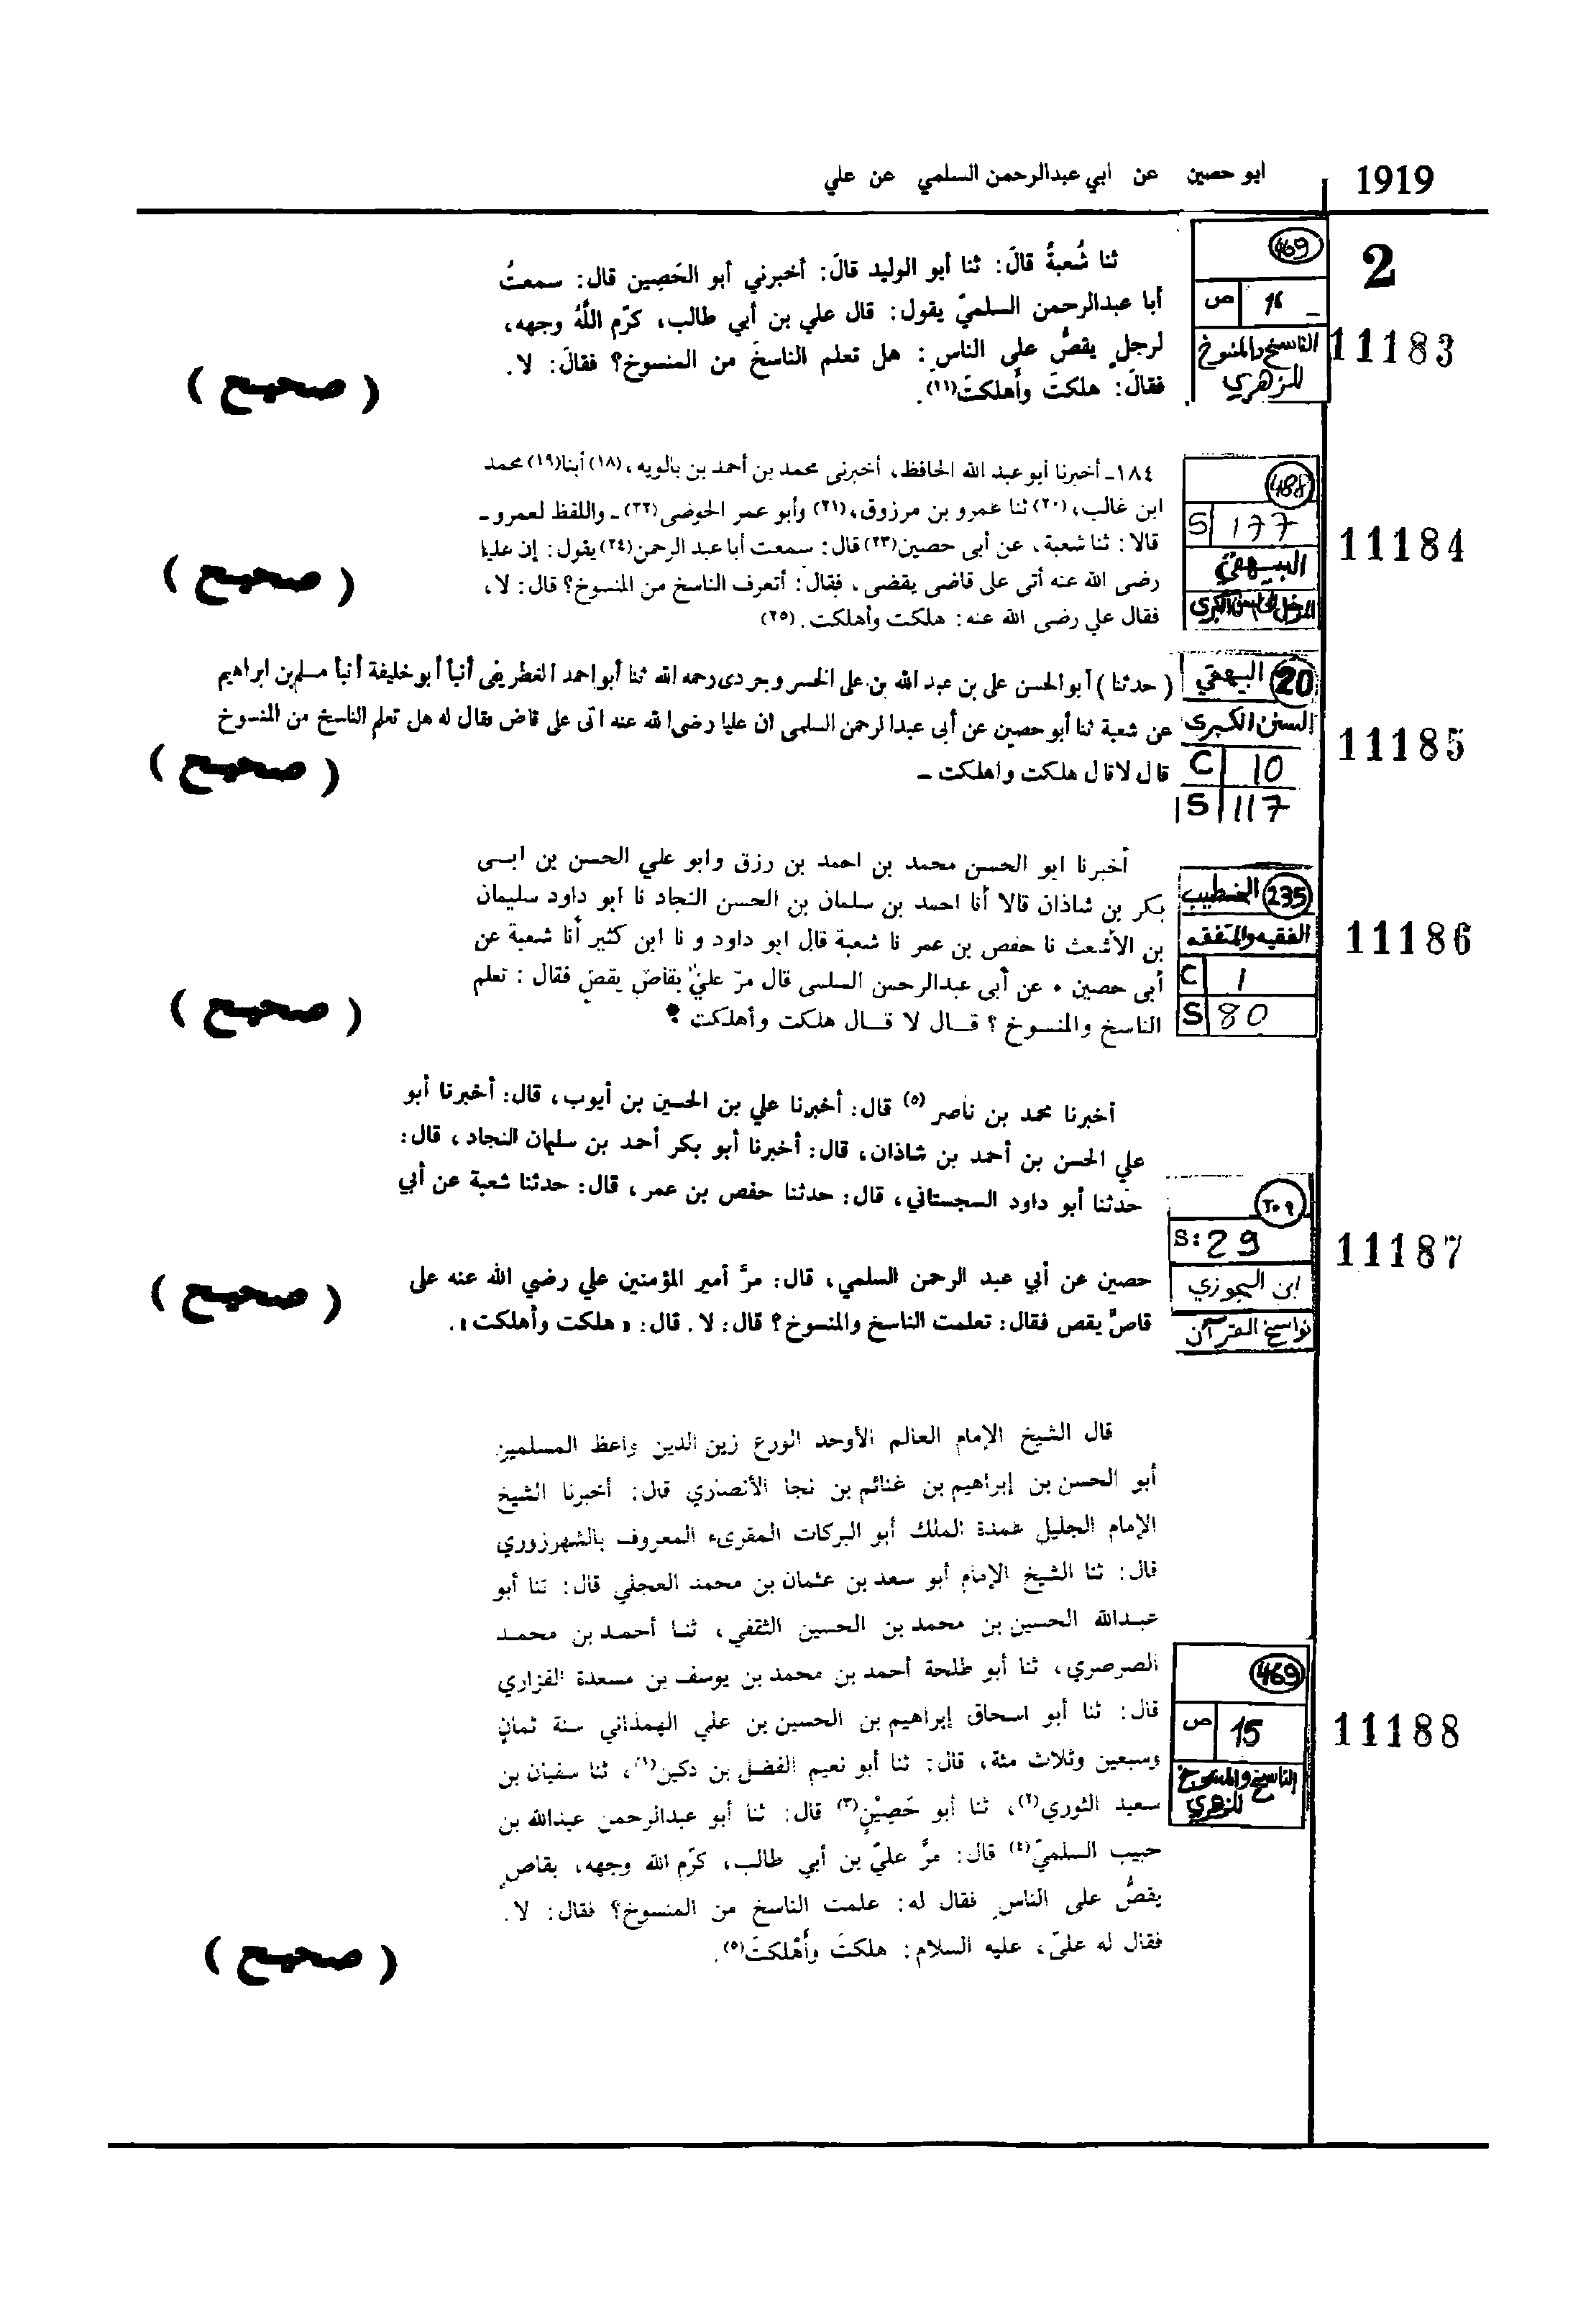 1919
ابو حصين عن ابي عبدالرحمن السلمي عن علي
2
469
ص 16
الناسخ والمنسوخ
للزهري
11183
ثنا شُعبةُ قالَ: ثنا أبو الوليد قالَ: أخبرني أبو الحَصِين قال: سمعتُ
أبا عبدالرحمن السلميّ يقول: قال علي بن أبي طالب، كرّم اللَّهُ وجهه،
لرجلٍ يقصُّ على الناسِ: هل تعلم الناسخَ من المنسوخ؟ فقالَ: لا.
فقالَ: هلكتَ وأَهلكتَ(١١).
( صحيح )
488
S 177
البيهقي
المدخل الى السنن الكبرى
11184
١٨٤ـ أخبرنا أبو عبد الله الحافظ، أخبرنى محمد بن أحمد بن بالويه،(١٨) أبنا(١٩) محمد
ابن غالب،(٢٠) ثنا عمرو بن مرزوق،(٢١) وأبو عمر الحوضى(٢٢) ـ واللفظ لعمرو ـ
قالا: ثنا شعبة، عن أبى حصين(٢٣) قال: سمعت أبا عبد الرحمن(٢٤) يقول: إن عليا
رضى الله عنه أتى على قاضى يقضى، فقال: أتعرف الناسخ من المنسوخ؟ قال: لا،
فقال علي رضى الله عنه: هلكت وأهلكت. (٢٥)
( صحيح )
20 البيهقي
السنن الكبرى
C 10
S 117
11185
( حدثنا ) أبو الحسن على بن عبد الله بن على الخسر وجردى رحمه الله ثنا أبو احمد الغطريفى أنبأ أبو خليفة أنبأ مسلم بن ابراهيم
عن شعبة ثنا أبو حصين عن أبى عبد الرحمن السلمى ان عليا رضى الله عنه اتى على قاض فقال له هل تعلم الناسخ من المنسوخ
قال لا قال هلكت واهلكت ـ
( صحيح )
235 الخطيب
الفقيه والمتفقه
C 1
S 80
11186
أخبرنا ابو الحسن محمد بن احمد بن رزق وابو علي الحسن بن ابـى
بكر بن شاذان قالا أنا احمد بن سلمان بن الحسن النجاد نا ابو داود سليمان
بن الأشعث نا حفص بن عمر نا شعبة قال ابو داود و نا ابن كثير أنا شعبة عن
أبى حصين ٠ عن أبى عبدالرحمن السلمى قال مرّ عليّ بقاصّ يقصّ فقال : تعلم
الناسخ والمنسوخ ؟ قـال لا قـال هلكت وأهلكت ؟
( صحيح )
٢٥٩
S: 29
ابن الجوزي
نواسخ القرآن
11187
أخبرنا محمد بن ناصر (٥) قال: أخبرنا علي بن الحسين بن أيوب، قال: أخبرنا أبو
علي الحسن بن أحمد بن شاذان، قال: أخبرنا أبو بكر أحمد بن سليمان النجاد، قال:
حدثنا أبو داود السجستاني، قال: حدثنا حفص بن عمر، قال: حدثنا شعبة عن أبي
حصين عن أبي عبد الرحمن السلمي، قال: مرَّ أمير المؤمنين علي رضي الله عنه على
قاصٍّ يقص فقال: تعلمت الناسخ والمنسوخ؟ قال: لا. قال: « هلكت وأهلكت ».
( صحيح )
469
ص 15
الناسخ والمنسوخ
للزهري
11188
قال الشيخ الإمام العالم الأوحد الورع زين الدين واعظ المسلمين
أبو الحسن بن إبراهيم بن غنائم بن نجا الأنصاري قال: أخبرنا الشيخ
الإمام الجليل عمدة الملك أبو البركات المقرىء المعروف بالشهرزوري
قال: ثنا الشيخ الإمام أبو سعد بن عثمان بن محمد العجلي قال: ثنا أبو
عبـدالله الحسين بن محمد بن الحسين الثقفي، ثنـا أحمـد بن محمـد
الصرصري، ثنا أبو طلحة أحمد بن محمد بن يوسف بن مسعدة الفزاري
قال: ثنا أبو اسحاق إبراهيم بن الحسين بن علي الهمذاني سنة ثمانٍ
وسبعين وثلاث مئة، قال: ثنا أبو نعيم الفضل بن دكين(١)، ثنا سفيان بن
سعيد الثوري(٢)، ثنا أبو حَصِيْنٍ(٣) قال: ثنا أبو عبدالرحمن عبدالله بن
حبيب السلميّ(٤) قال: مرَّ عليّ بن أبي طالب، كرّم الله وجهه، بقاصٍ
يقصُّ على الناسِ فقال له: علمت الناسخ من المنسوخ؟ فقال: لا.
فقال له عليّ، عليه السلام: هلكتَ وأَهْلكتَ(٥).
( صحيح )